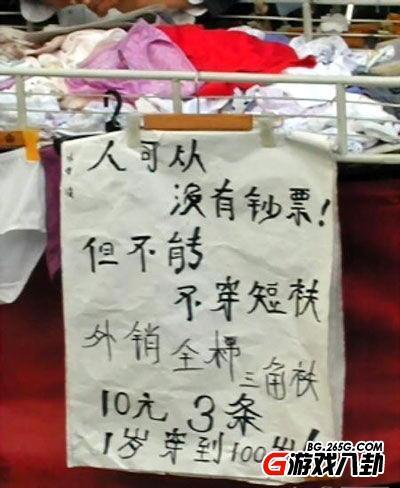 人可从
没有钞票!
但不能
不穿短袜
外销全棉
三角袜
10元3条
1岁穿到100岁!
BG.265G.COM
G游戏八卦